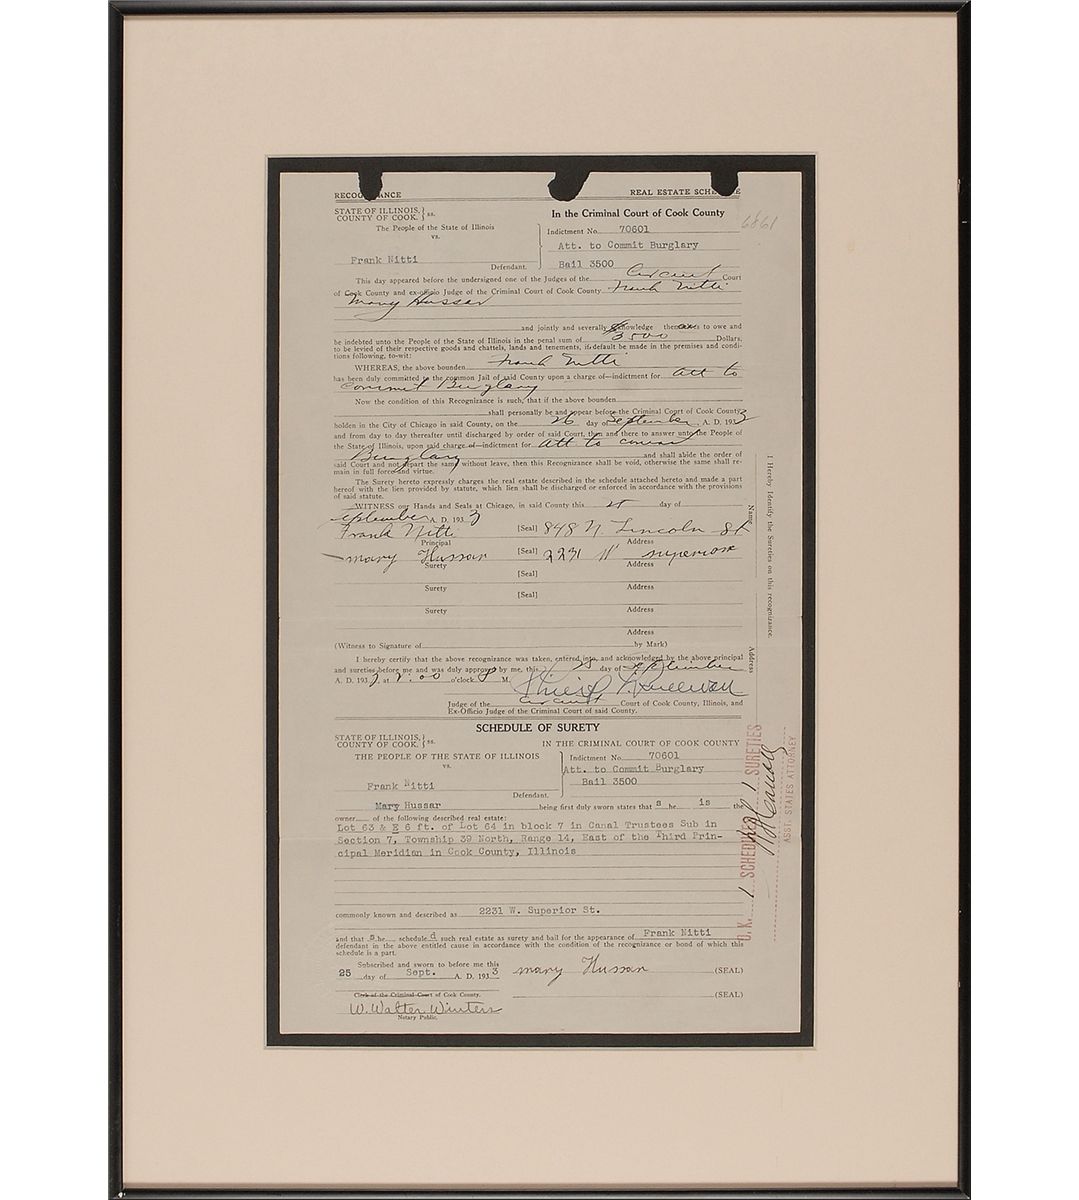 RECOGNIZANCE REAL ESTATE SCHEDULE
STATE OF ILLINOIS,
COUNTY OF COOK. } ss.
The People of the State of Illinois
vs.
Frank Nitti
Defendant.
In the Criminal Court of Cook County
6861
Indictment No. 70601
Att. to Commit Burglary
Bail 3500
This day appeared before the undersigned one of the Judges of the Circuit Court
of Cook County and ex-officio Judge of the Criminal Court of Cook County Frank Nitti
Mary Hussar
and jointly and severally acknowledge themselves to owe and
be indebted unto the People of the State of Illinois in the penal sum of $3500 Dollars,
to be levied of their respective goods and chattels, lands and tenements, if default be made in the premises and condi-
tions following, to-wit:
WHEREAS, the above bounden Frank Nitti
has been duly committed to the common Jail of said County upon a charge of—indictment for Att to
Commit Burglary
Now the condition of this Recognizance is such, that if the above bounden
shall personally be and appear before the Criminal Court of Cook County
holden in the City of Chicago in said County, on the 26 day of September A. D. 1933
and from day to day thereafter until discharged by order of said Court, then and there to answer unto the People of
the State of Illinois, upon said charge of—indictment for Att to
Burglary and shall abide the order of
said Court and not depart the same without leave, then this Recognizance shall be void, otherwise the same shall re-
main in full force and virtue.
The Surety hereto expressly charges the real estate described in the schedule attached hereto and made a part
hereof with the lien provided by statute, which lien shall be discharged or enforced in accordance with the provisions
of said statute.
WITNESS our Hands and Seals at Chicago, in said County this day of
September A. D. 193
Frank Nitti [Seal] 848 N. Lincoln St
Principal Address
Mary Hussar [Seal] 2231 W Superior
Surety Address
[Seal]
Surety Address
[Seal]
Surety Address
Address
(Witness to Signature of by Mark)
I hereby certify that the above recognizance was taken, entered into, and acknowledged by the above principal
and sureties before me and was duly approved by me, this 25 day of September
A. D. 193 at o'clock P M.
Judge of the Circuit Court of Cook County, Illinois, and
Ex-Officio Judge of the Criminal Court of said County.
I Hereby Identify the Sureties on this recognizance.
Name
Address
SCHEDULE OF SURETY
STATE OF ILLINOIS,
COUNTY OF COOK. } ss. IN THE CRIMINAL COURT OF COOK COUNTY
THE PEOPLE OF THE STATE OF ILLINOIS
vs.
Frank Nitti
Defendant.
Indictment No. 70601
Att. to Commit Burglary
Bail 3500
Mary Hussar being first duly sworn states that s he is the
owner of the following described real estate:
Lot 63 & E 6 ft. of Lot 64 in block 7 in Canal Trustees Sub in
Section 7, Township 39 North, Range 14, East of the Third Prin-
cipal Meridian in Cook County, Illinois
commonly known and described as 2231 W. Superior St.
and that s he schedule d such real estate as surety and bail for the appearance of Frank Nitti
defendant in the above entitled cause in accordance with the condition of the recognizance or bond of which this
schedule is a part.
Subscribed and sworn to before me this
25 day of Sept. A. D. 193 3 Mary Hussar (SEAL)
Clerk of the Criminal Court of Cook County. (SEAL)
W. Walter Winters
Notary Public.
O. K. 1 SCHEDULE 1 SURETIES
ASST. STATES ATTORNEY